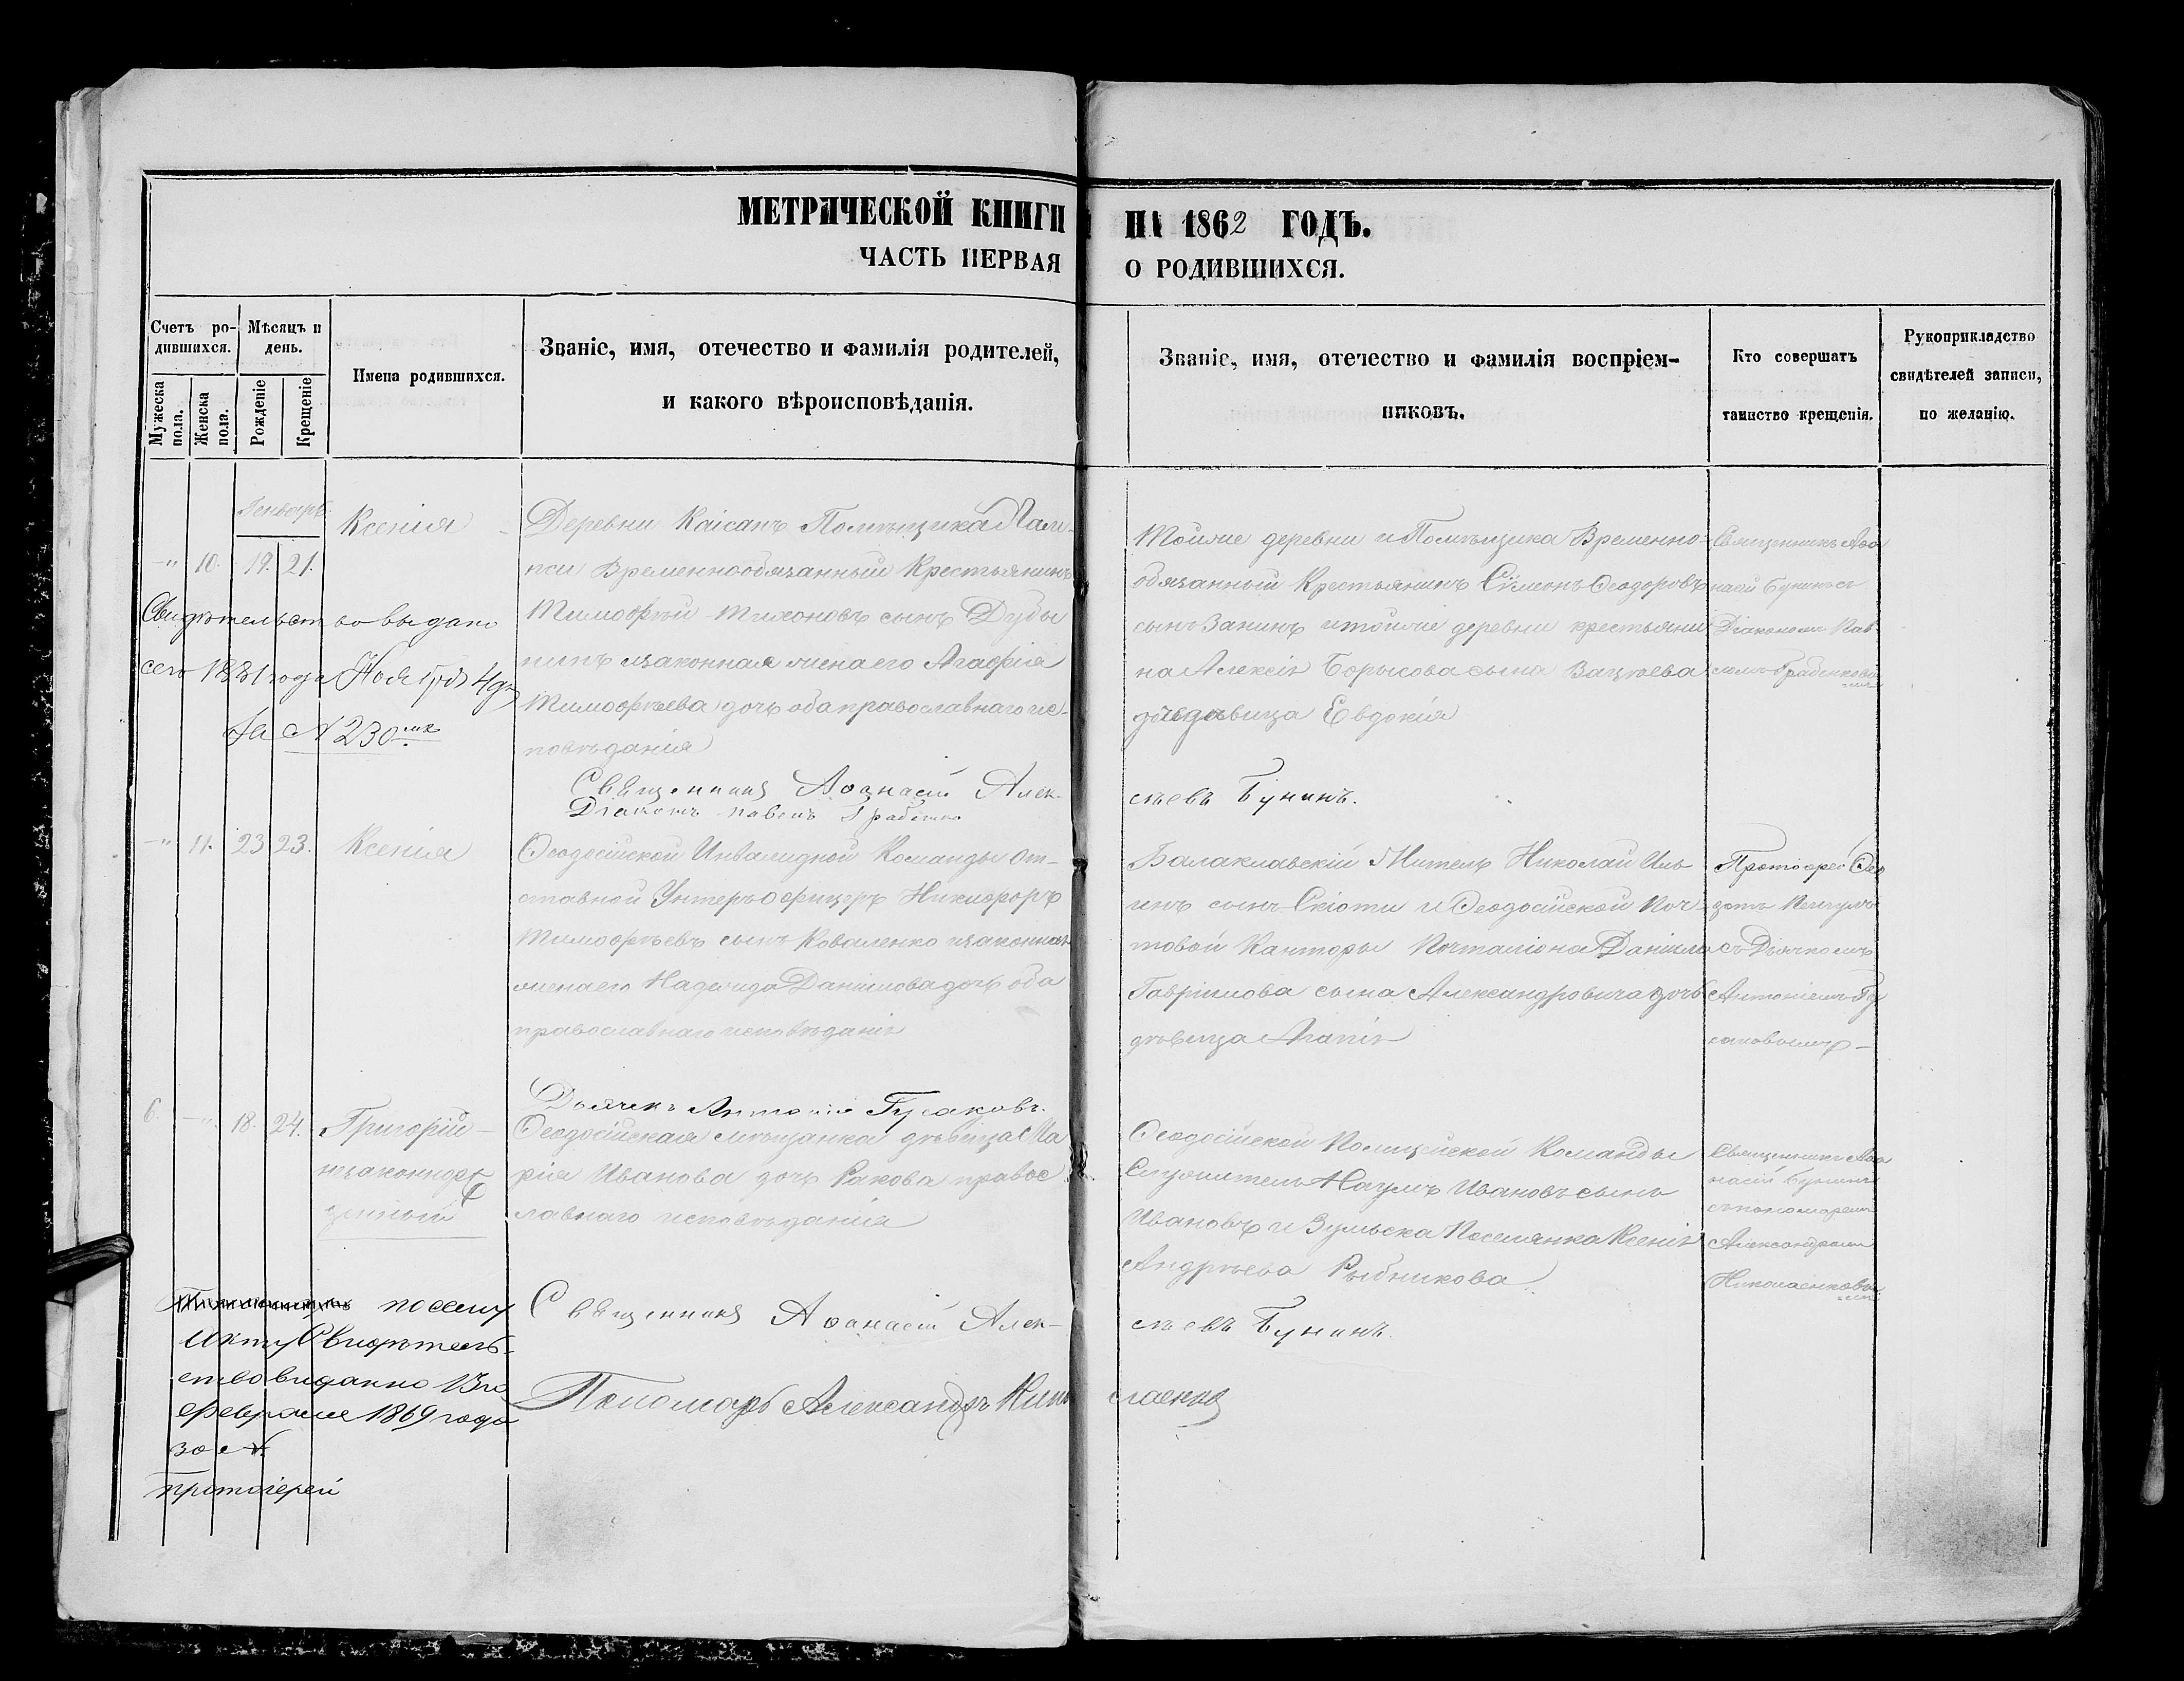 МЕТРИЧЕСКОЙ КНИГИ НА 1862 ГОДЪ.
ЧАСТЬ ПЕРВАЯ О РОДИВШИХСЯ.
Счетъ родившихся.
Мужеска пола.
Женска пола.
Мѣсяцъ и день.
Рожденіе
Крещеніе
Имена родившихся.
Званіе, имя, отечество и фамилія родителей,
и какого вѣроисповѣданія.
Званіе, имя, отечество и фамилія воспріем-
никовъ.
Кто совершалъ
таинство крещенія.
Рукоприкладство
свидѣтелей записи,
по желанію.
Генварь
-" 10. 19. 21.
Ксенія
Деревни Помѣщика
Временнообязанный Крестьянинъ
Тимофѣй Тихоновъ сынъ Дубы
нинъ и законная жена его Агафія
Тимофѣева дочь оба православнаго ис-
повѣданія
Тойже деревни и Помѣщика Временно-
обязанный Крестьянинъ Сѵмеонъ Ѳеодоровъ
сынъ Занинъ и тойже деревни крестьяни
на Алексія Борисова сына
дѣвица Евдокія
Священникъ Аѳа
насій Бунинъ съ
Діакономъ Пав
ломъ Грабенковы
мъ
Свидѣтельство выдано
сего 1881 года Ноября 4 дн
За N 230мъ
Священникъ Аѳанасій Алек-
сѣевъ Бунинъ.
Діаконъ Павелъ
-" 11. 23 23.
Ксенія
Ѳеодосійской Инвалидной Команды от-
ставной Унтеръ офицеръ Никифоръ
Тимофѣевъ сынъ Коваленко и законная
жена его Надежда Даніилова дочь оба
православнаго исповѣданія
Балаклавскій Житель Николай Иль
инъ сынъ Скіоти и Ѳеодосійской Поч
товой Канторы Почталіона Даніила
Гавріилова сына Александровича дочь
дѣвица Агапія
Протоіерей Ѳео
дотъ
съ Дьячкомъ
Антоніемъ Гу
саковымъ-
Дьячекъ Антоній Гусаковъ.
6. -" 18. 24.
Григорій-
незаконнорож
денный
Ѳеодосійская мѣщанка дѣвица Ма
рія Иванова дочь Ракова правос
лавнаго исповѣданія
Ѳеодосійской Полицейской Команды
Служитель Наумъ Ивановъ сынъ
Ивановъ и Зульска Поселянка Ксенія
Андрѣева Рыбникова
Священникъ Аѳа
насій Бунинъ
съ пономаремъ
Александромъ
Николаенковы
мъ
по сему
Акту Свидѣтель-
ство выданно 13го
февраля 1869 года
за N.
протоіерей
Священникъ Аѳанасій Алек-
сѣевъ Бунинъ.
Пономарь Александръ Нико
лаенко